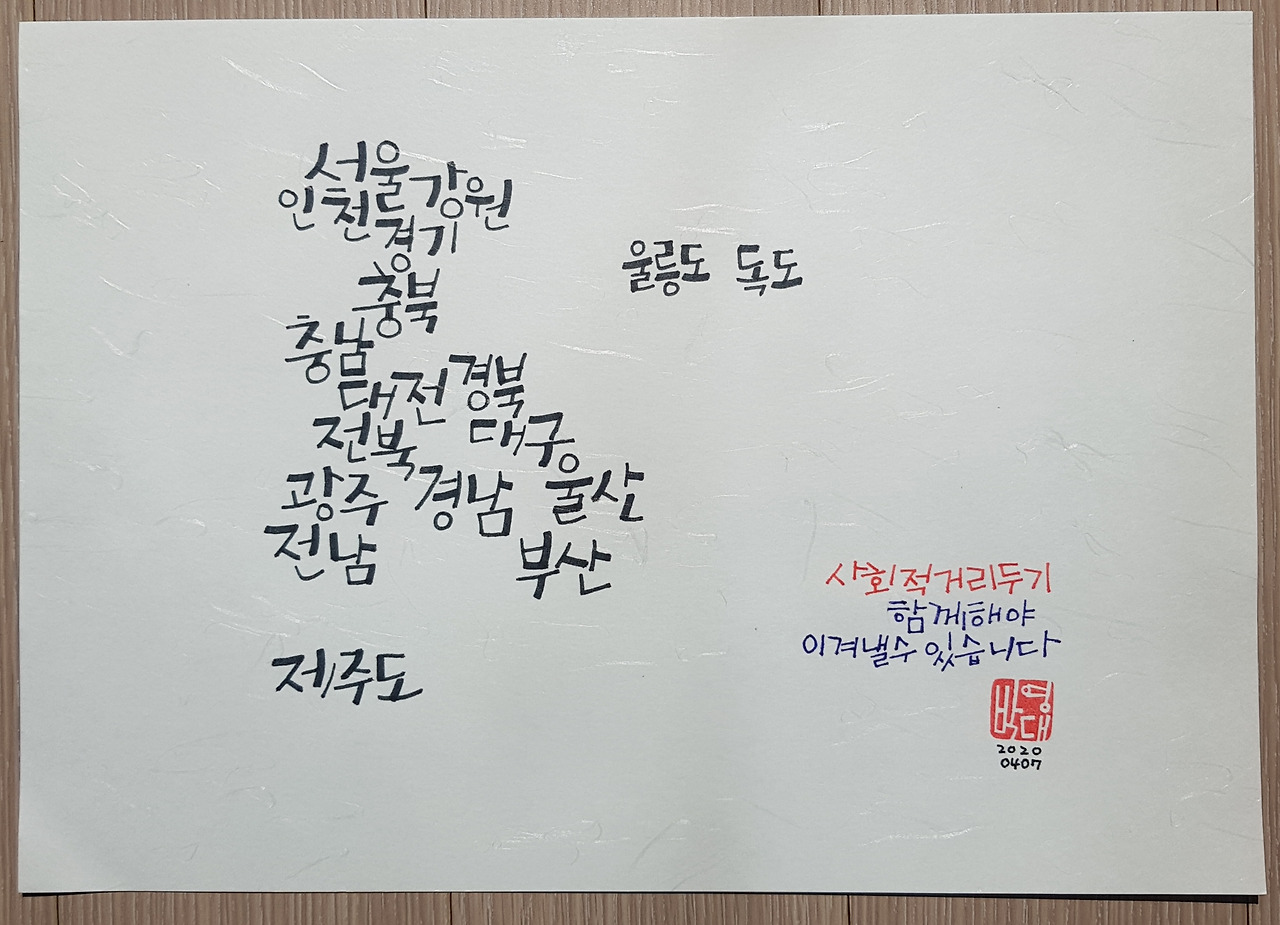 서울 강원
인천 경기
울릉도 독도
충북
충남
대전 경북
전북 대구
광주 경남 울산
전남 부산
제주도
사회적거리두기
함께해야
이겨낼수 있습니다
박영대
2020
0407